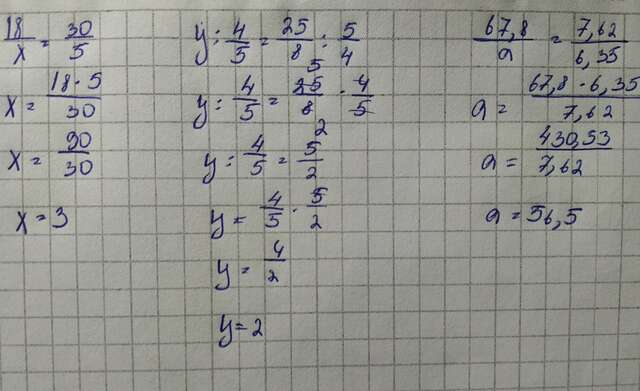 18/x = 30/5
x = 18·5/30
x = 90/30
x = 3
y : 4/5 = 25/8 : 5/4
y : 4/5 = 25/8 · 4/5
y : 4/5 = 5/2
y = 4/5 · 5/2
y = 4/2
y = 2
67,8/a = 7,62/6,35
a = 67,8 · 6,35/7,62
a = 430,53/7,62
a = 56,5